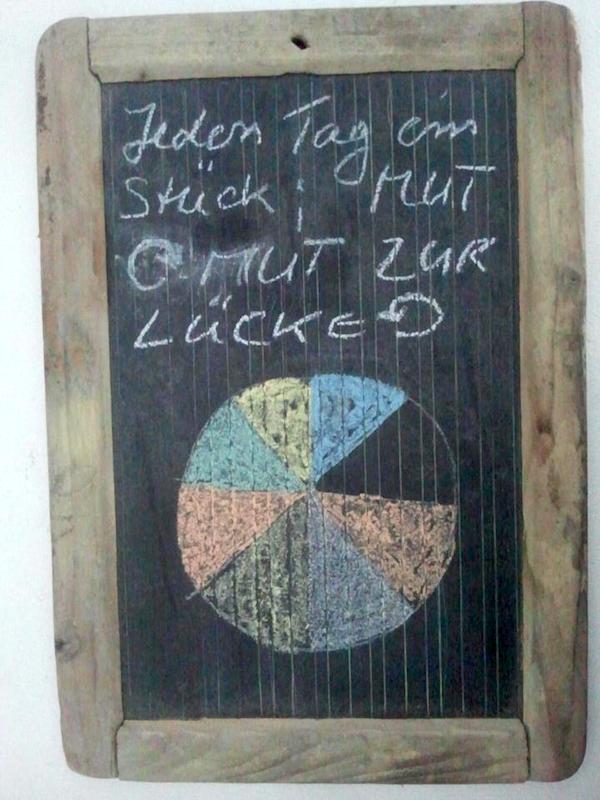 Jeden Tag ein
Stück: MUT
MUT ZUR
LÜCKE